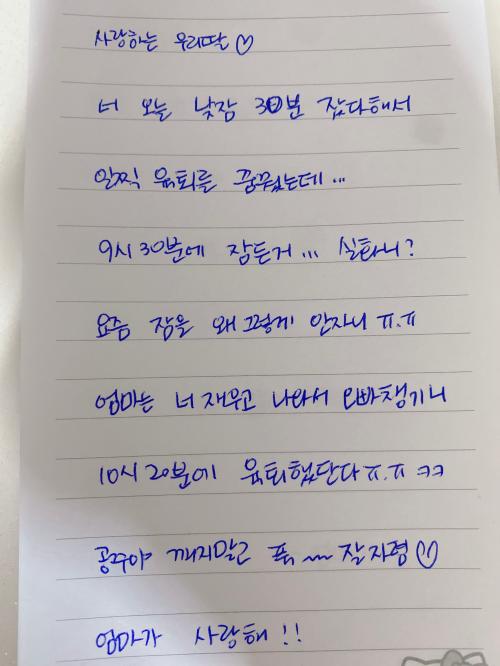 사랑하는 우리딸♡
너 오늘 낮잠 30분 잤다해서
일찍 육퇴를 꿈꿨는데...
9시 30분에 잠든거... 실화니?
요즘 잠을 왜 그렇게 안자니 ㅠ.ㅠ
엄마는 너 재우고 나와서 오빠챙기니
10시 20분에 육퇴했단다 ㅠ.ㅠ ㅋㅋ
공주야 깨지말고 푹~~ 잘자렴♡
엄마가 사랑해!!